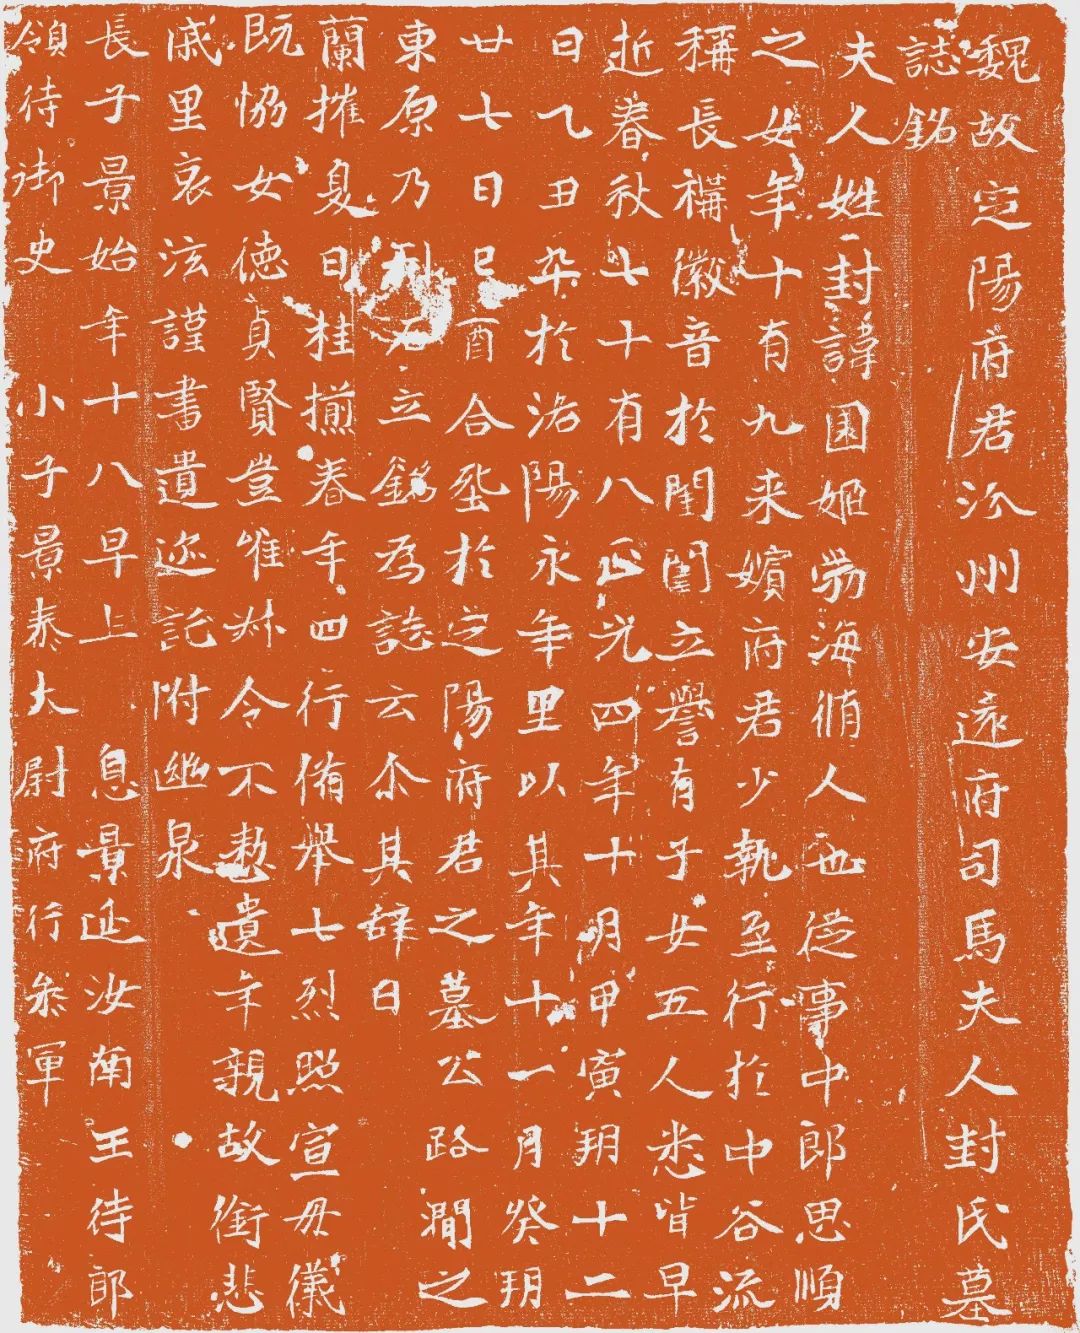 魏故㝎陽府君汾州安遠府司馬夫人封氏墓
誌銘
夫人姓封諱囯姬勃海脩人也從事中郎思順
之女年十有九来嬪府君少執至行於中谷流
稱長禱徽音於閨闈立譽有子女五人悉皆早
逝春秋七十有八正光四年十月甲寅朔十二
日乙丑卒於洛陽永年里以其年十一月癸朔
廿七日己酉合㘸於㝎陽府君之墓公路澗之
東原乃刊石立銘為誌云尒其辞曰
蘭摧夏日桂揃春年四行俻舉七烈照宣毋儀
既恊女徳貞賢豈唯令不慭遺年親故銜悲
戚里哀泫謹書遺迹託附幽泉
長子景始年十八早上　息景延汝南王待郎
領待御史　小子景泰大尉府行叅軍